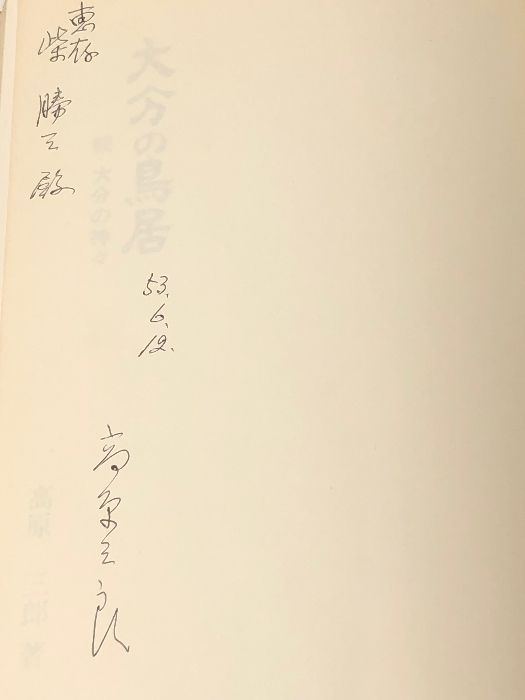 恵存
柴 勝三 殿
53.
6.
12.
高原三郎
大分の鳥居
続・大分の神々
高原 三郎 著